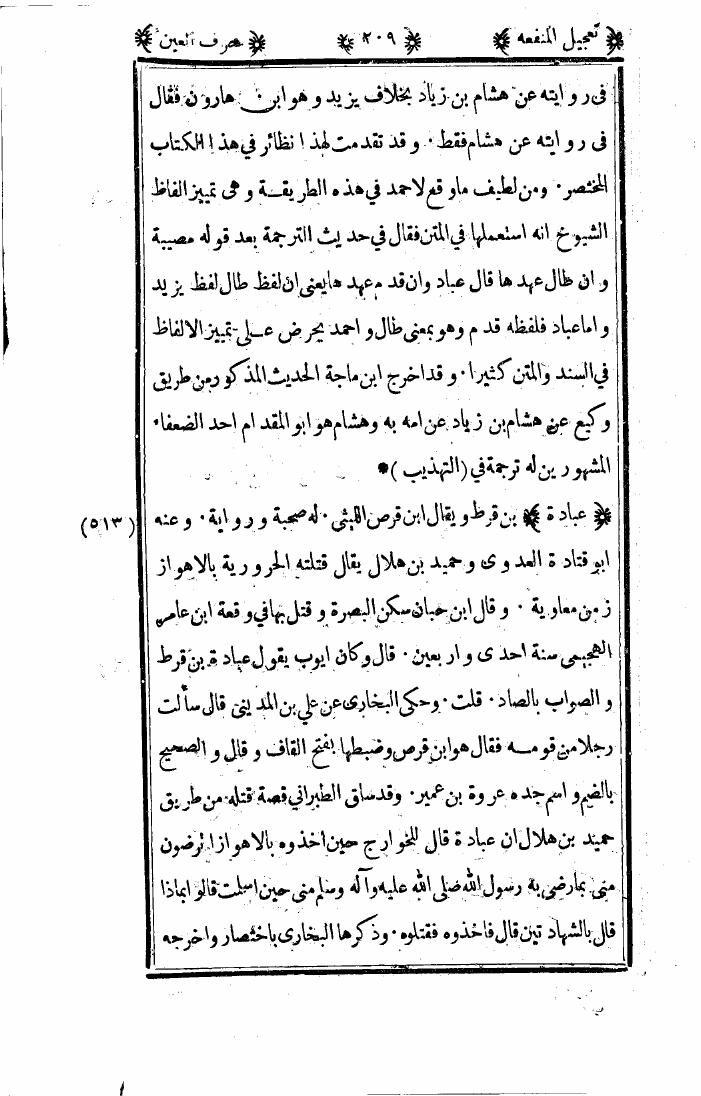 ﴿ تعجيل المنفعه ﴾ ﴿ ٢٠٩ ﴾ ﴿ حرف العين ﴾
فى روايته عن هشام بن زياد بخلاف يزيد وهو ابن هارون فقال
فى روايته عن هشام فقط ٠ وقد تقدمت لهذا نظائر في هذا الكتاب
المختصر ٠ ومن لطيف ما وقع لاحمد في هذه الطريقة وهى تمييز الفاظ
الشيوخ انه استعملها في المتن فقال في حديث الترجمة بعد قوله مصيبة
وان طال عهدها قال عباد وان قدم عهدها يعني ان لفظ طال لفظ يزيد
واما عباد فلفظه قدم وهو بمعنى طال واحمد يحرض على تمييز الالفاظ
في السند والمتن كثيرا ٠ وقد اخرج ابن ماجة الحديث المذكور من طريق
وكيع عن هشام بن زياد عن امه به وهشام هو ابو المقدام احد الضعفاء
المشهورين له ترجمة في (التهذيب) *
﴿ عبادة ﴾ بن قرط ويقال ابن قرص الليثي ٠ له صحبة ورواية ٠ وعنه (٥١٣)
ابو قتادة العدوى وحميد بن هلال يقال قتلته الحرورية بالاهواز
زمن معاوية ٠ وقال ابن حبان سكن البصرة وقتل بها في وقعة ابن عامر
الهجيمى سنة احدى واربعين ٠ قال وكان ايوب يقول عبادة بن قرط
والصواب بالصاد ٠ قلت ٠ وحكى البخارى عن علي بن المدينى قال سألت
رجلا من قومه فقال هو ابن قرص وضبطها بفتح القاف وقال والصحيح
بالضم واسم جده عروة بن عمير ٠ وقد ساق الطبراني قصة قتله من طريق
حميد بن هلال ان عبادة قال للخوارج حين اخذوه بالاهواز اترضون
منى بما رضى به رسول الله صلى الله عليه وآله وسلم منى حين اسلمت قالوا بماذا
قال بالشهادتين قال فاخذوه فقتلوه ٠ وذكرها البخارى باختصار واخرجه